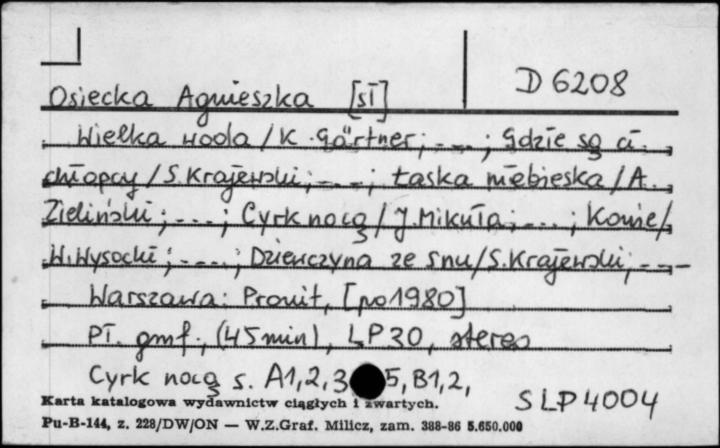 D 6208
Osiecka Agnieszka [sł]
Wielka woda / K. Gärtner; ---; Gdzie są ci
chłopcy / S. Krajewski; ---; Łaska niebieska / A.
Zieliński; ---; Cyrk nocą / J. Mikuła; ---; Konie /
W. Wysocki; ---; Dziewczyna ze snu / S. Krajewski; ---
Warszawa: Pronit, [po 1980]
Pł. gmf., (45 min), LP 30, stereo
Cyrk nocą s. A1,2,3 5, B1,2,
SLP 4004
Karta katalogowa wydawnictw ciągłych i zwartych.
Pu-B-144, z. 228/DW/ON — W.Z.Graf. Milicz, zam. 388-86 5.650.000